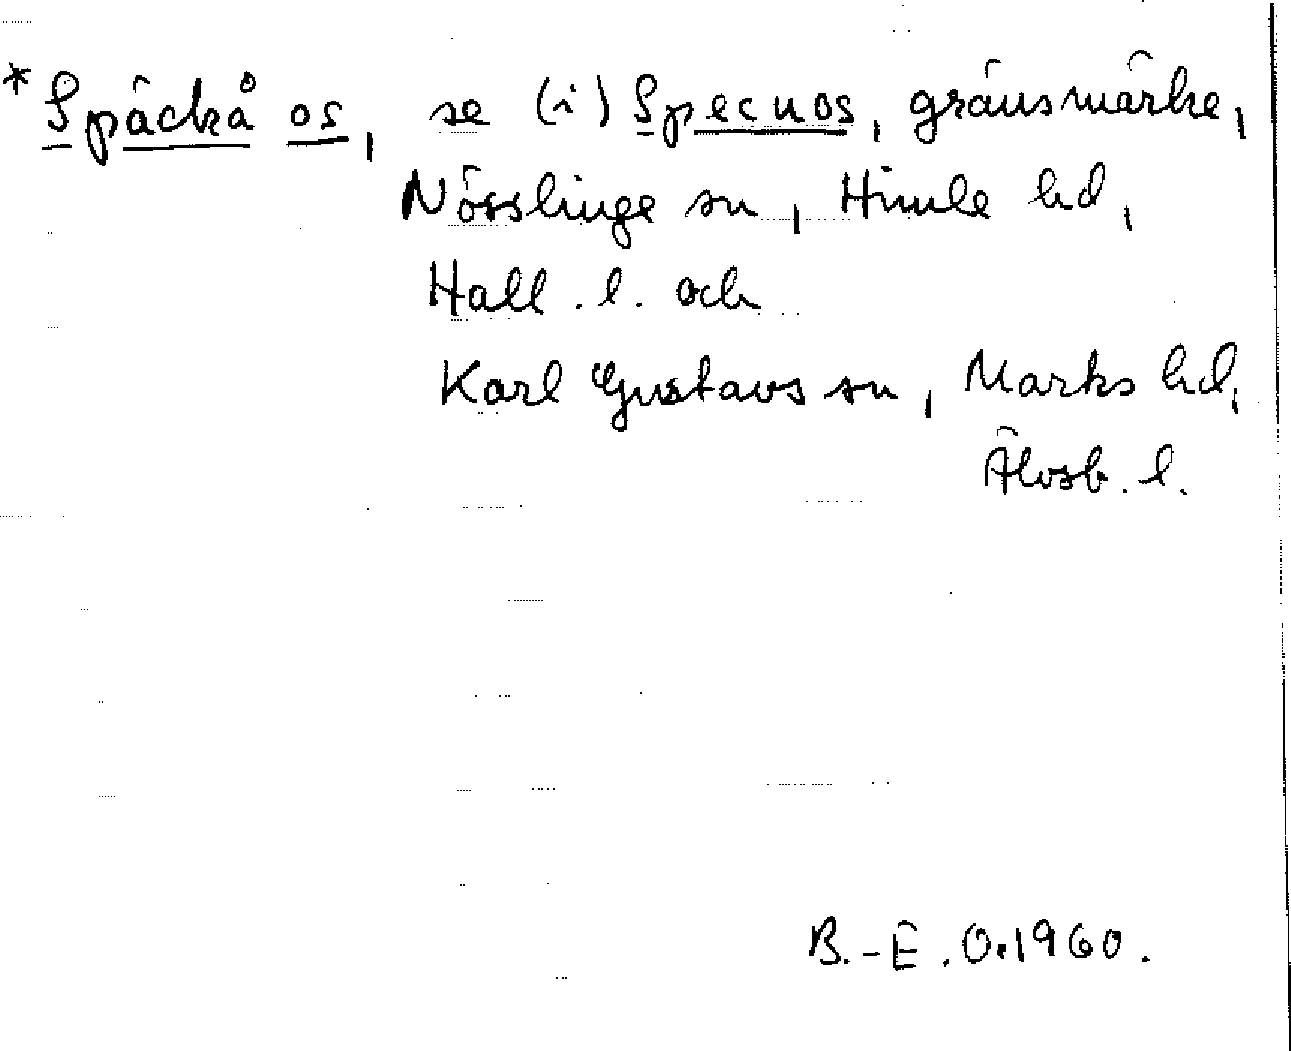 *Späckå os, se (i) Specnos, gränsmärke,
Nösslinge sn, Himle hd,
Hall. l. och
Karl Gustavs sn, Marks hd,
Älvsb. l.
B.-E. O. 1960.